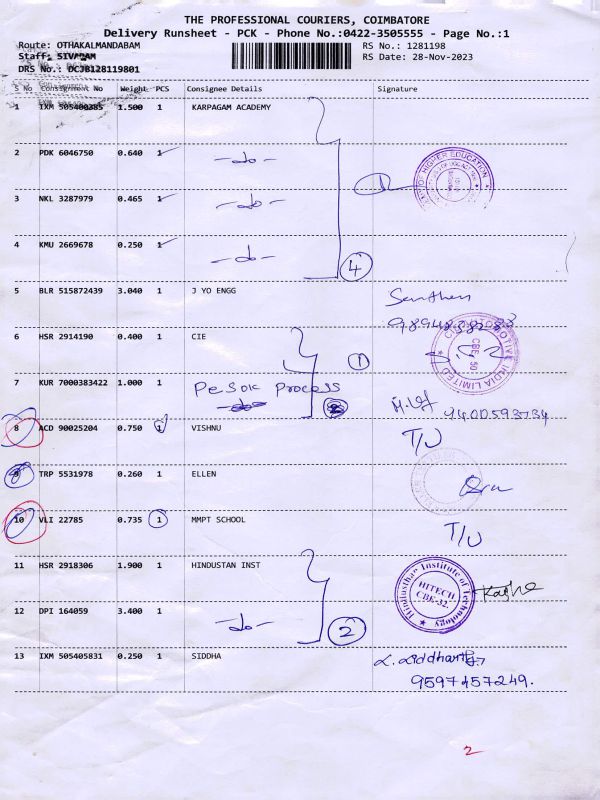 THE PROFESSIONAL COURIERS, COIMBATORE
Delivery Runsheet - PCK - Phone No.:0422-3505555 - Page No.:1
Route: OTHAKALMANDABAM RS No.: 1281198
Staff: SIVARAM RS Date: 28-Nov-2023
DRS No.: DCJB128119801
S No Consignment No Weight PCS Consignee Details Signature
1 IXM 505400385 1.500 1 KARPAGAM ACADEMY
2 PDK 6046750 0.640 1 -do-
HIGHER EDUCATION
3 NKL 3287979 0.465 1 -do-
4 KMU 2669678 0.250 1 -do-
4
5 BLR 515872439 3.040 1 J YO ENGG
6 HSR 2914190 0.400 1 CIE
1
INDIA LIMITED
CBE - 50
7 KUR 7000383422 1.000 1 Process
9400593734
8 ACD 90025204 0.750 1 VISHNU T/U
9 TRP 5531978 0.260 1 ELLEN
10 VLI 22785 0.735 1 MMPT SCHOOL T/U
11 HSR 2918306 1.900 1 HINDUSTAN INST
Hindusthan Institute of Technology
HITECH
CBE-32.
12 DPI 164059 3.400 1 -do-
2
13 IXM 505405831 0.250 1 SIDDHA
9597457249.
2